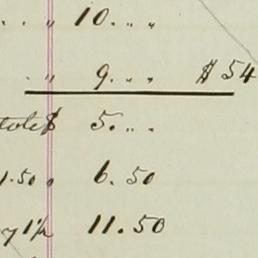 " 10. " "
" 9. " " $54
$ 5. " "
1.50 " 6.50
1½ 11.50